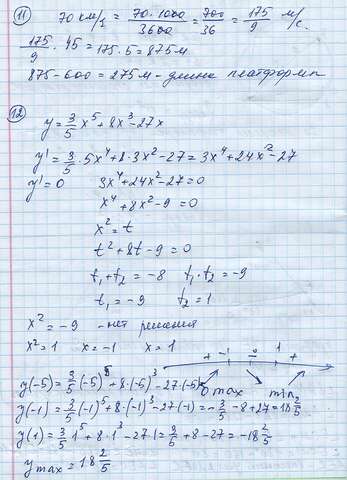 11 70 км/ч = 70·1000/3600 = 700/36 = 175/9 м/с.
175/9 · 45 = 175·5 = 875м
875 - 600 = 275м - длина платформы
12
y = 3/5 x⁵ + 8x³ - 27x
y' = 3/5 · 5x⁴ + 8·3x² - 27 = 3x⁴ + 24x² - 27
y' = 0 3x⁴ + 24x² - 27 = 0
x⁴ + 8x² - 9 = 0
x² = t
t² + 8t - 9 = 0
t₁ + t₂ = -8 t₁ · t₂ = -9
t₁ = -9 t₂ = 1
x² = -9 - нет решения
x² = 1 x = -1 x = 1
+ -1 - 1 +
max min
y(-5) = 3/5(-5)⁵ + 8·(-5)³ - 27·(-5) < 0
y(-1) = 3/5(-1)⁵ + 8·(-1)³ - 27·(-1) = -3/5 - 8 + 27 = 18 2/5
y(1) = 3/5 · 1⁵ + 8·1³ - 27·1 = 3/5 + 8 - 27 = -18 2/5
y max = 18 2/5